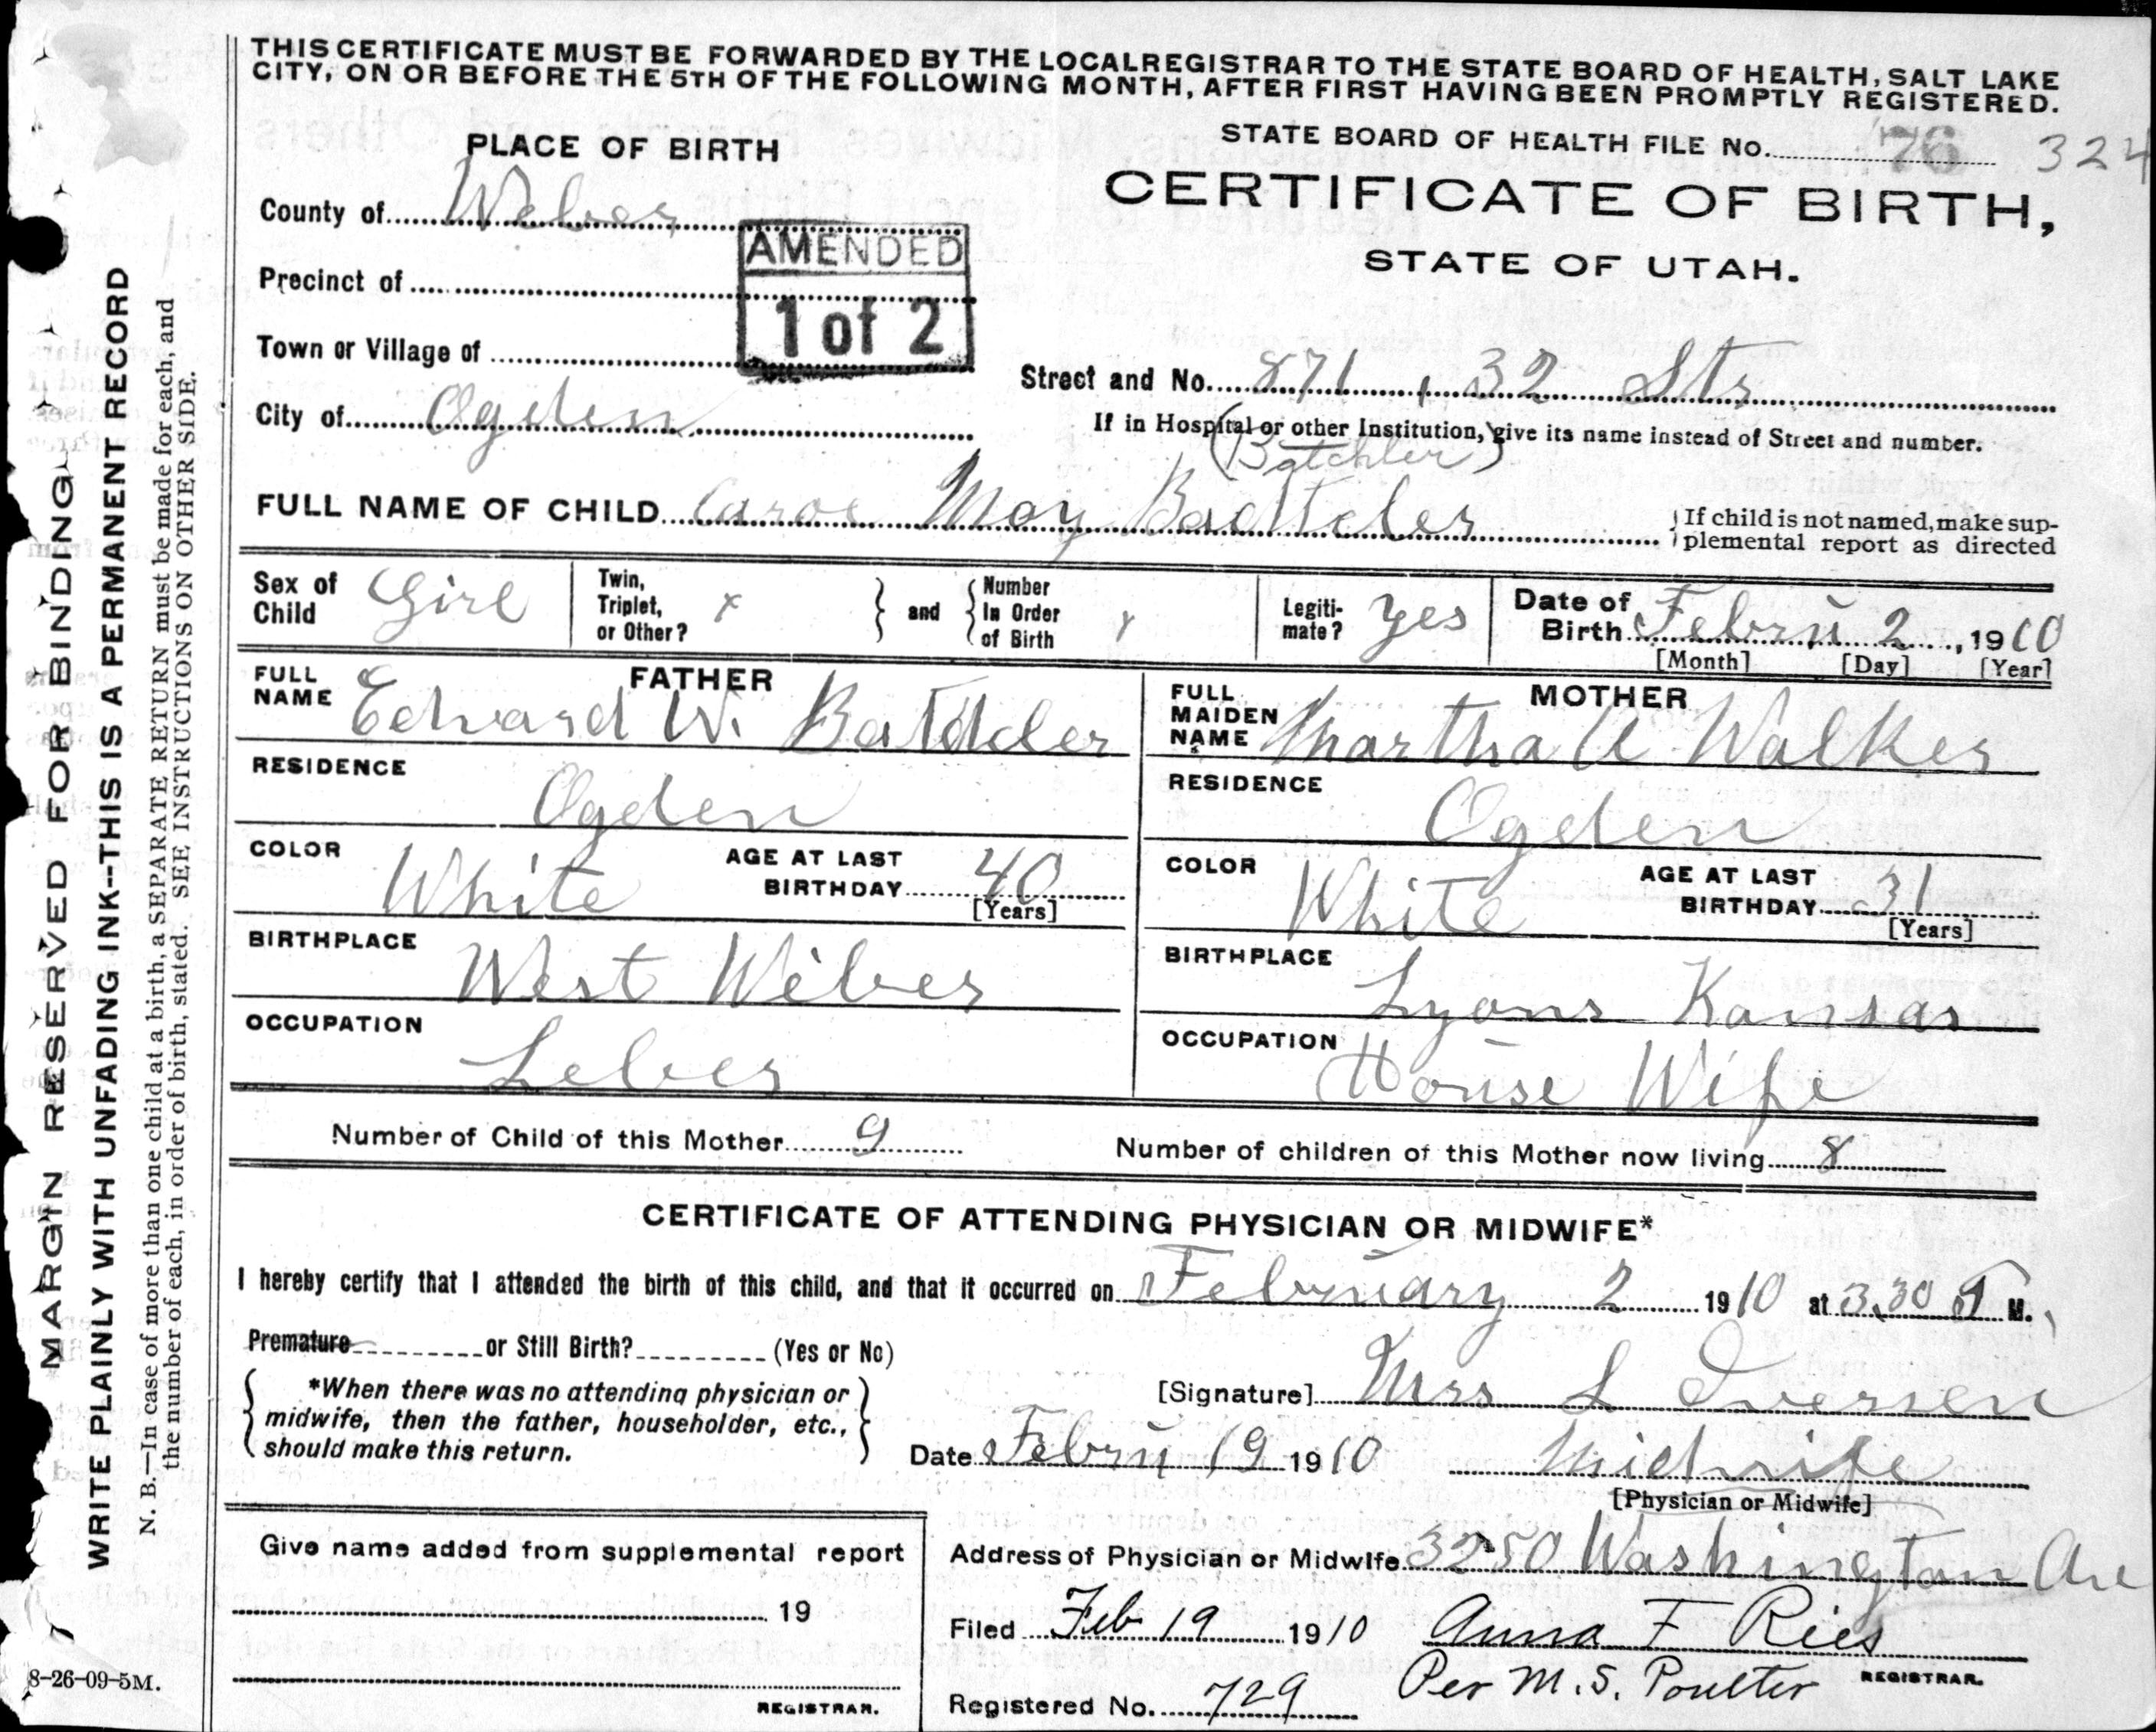 THIS CERTIFICATE MUST BE FORWARDED BY THE LOCAL REGISTRAR TO THE STATE BOARD OF HEALTH, SALT LAKE
CITY, ON OR BEFORE THE 5TH OF THE FOLLOWING MONTH, AFTER FIRST HAVING BEEN PROMPTLY REGISTERED.
STATE BOARD OF HEALTH FILE No. 76 324
PLACE OF BIRTH
CERTIFICATE OF BIRTH,
STATE OF UTAH.
County of Weber
AMENDED
1 of 2
Precinct of
Town or Village of
Street and No. 871, 32 Str
City of Ogden
If in Hospital or other Institution, give its name instead of Street and number.
(Batchler)
FULL NAME OF CHILD May
If child is not named, make sup-
plemental report as directed
Sex of Child Girl
Twin, Triplet, or Other? x
and
Number In Order of Birth x
Legiti-mate? yes
Date of Birth Febru 2, 1910
[Month] [Day] [Year]
FATHER
FULL NAME Edward W.
RESIDENCE
Ogden
COLOR White
AGE AT LAST BIRTHDAY 40
[Years]
BIRTHPLACE
West Weber
OCCUPATION
Leber
MOTHER
FULL MAIDEN NAME Martha A Walker
RESIDENCE
Ogden
COLOR White
AGE AT LAST BIRTHDAY 31
[Years]
BIRTHPLACE
Lyons Kansas
OCCUPATION House Wife
Number of Child of this Mother 9
Number of children of this Mother now living 8
CERTIFICATE OF ATTENDING PHYSICIAN OR MIDWIFE*
I hereby certify that I attended the birth of this child, and that it occurred on February 2 1910 at 3.30 M.
Premature or Still Birth? (Yes or No)
*When there was no attending physician or
midwife, then the father, householder, etc.,
should make this return.
[Signature] Mrs L Iversen
Date Febru 19 1910
Midwife
[Physician or Midwife]
Give name added from supplemental report
19
REGISTRAR.
Address of Physician or Midwife 3250 Washington Ave
Filed Feb 19 1910 Anna F Ries
Per M. S. Poulter REGISTRAR.
Registered No. 729
MARGIN RESERVED FOR BINDING
WRITE PLAINLY WITH UNFADING INK--THIS IS A PERMANENT RECORD
N. B.—In case of more than one child at a birth, a SEPARATE RETURN must be made for each, and
the number of each, in order of birth, stated. SEE INSTRUCTIONS ON OTHER SIDE.
8-26-09-5M.